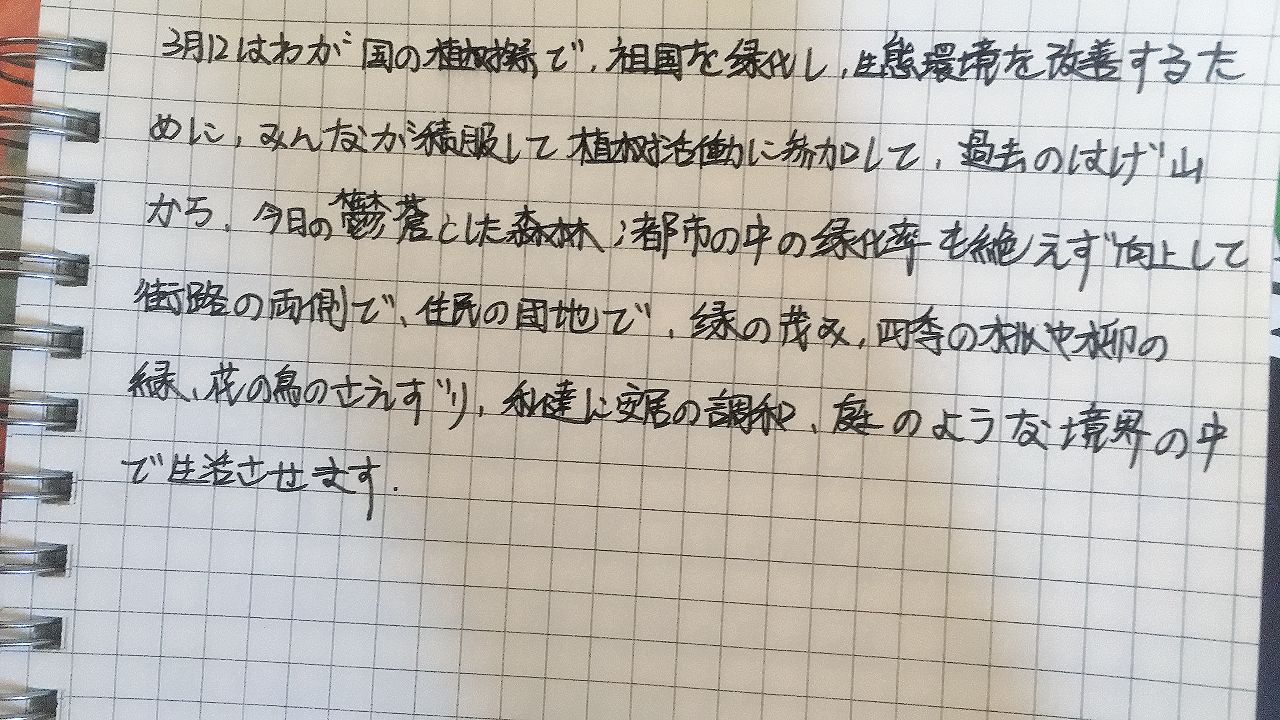 3月12はわが国の植树祭で、祖国を緑化し、生態環境を改善するた
めに、みんなが積服して植树活働に参加して、過去のはげ山
から、今日の鬱蒼とした森林；都市の中の緑化率も絶えず向上して
街路の両側で、住民の団地で、緑の茂み、四季の桃や柳の
緑、花の鳥のさえずり、私達に安居の調和、庭のような境界の中
で生活させます.